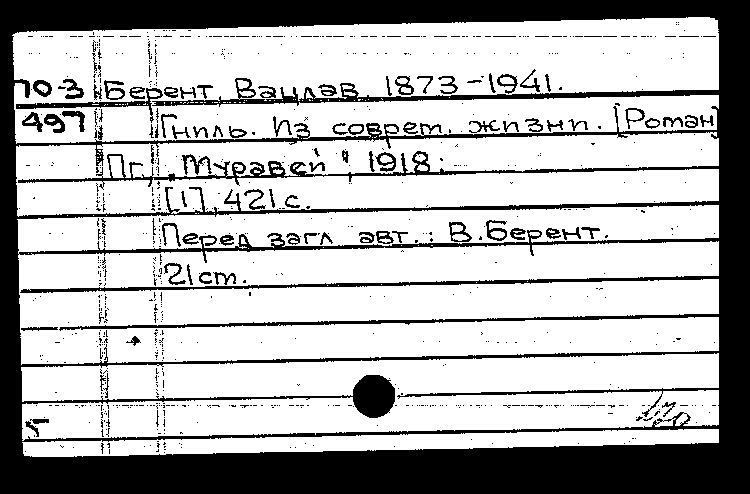 70-3 Берент, Вацлав. 1873-1941.
497 Гниль. Из соврем. жизни. [Роман]
Пг., "Муравей", 1918.
[1], 421 с.
Перед загл авт.: В. Берент.
21 cm.
5